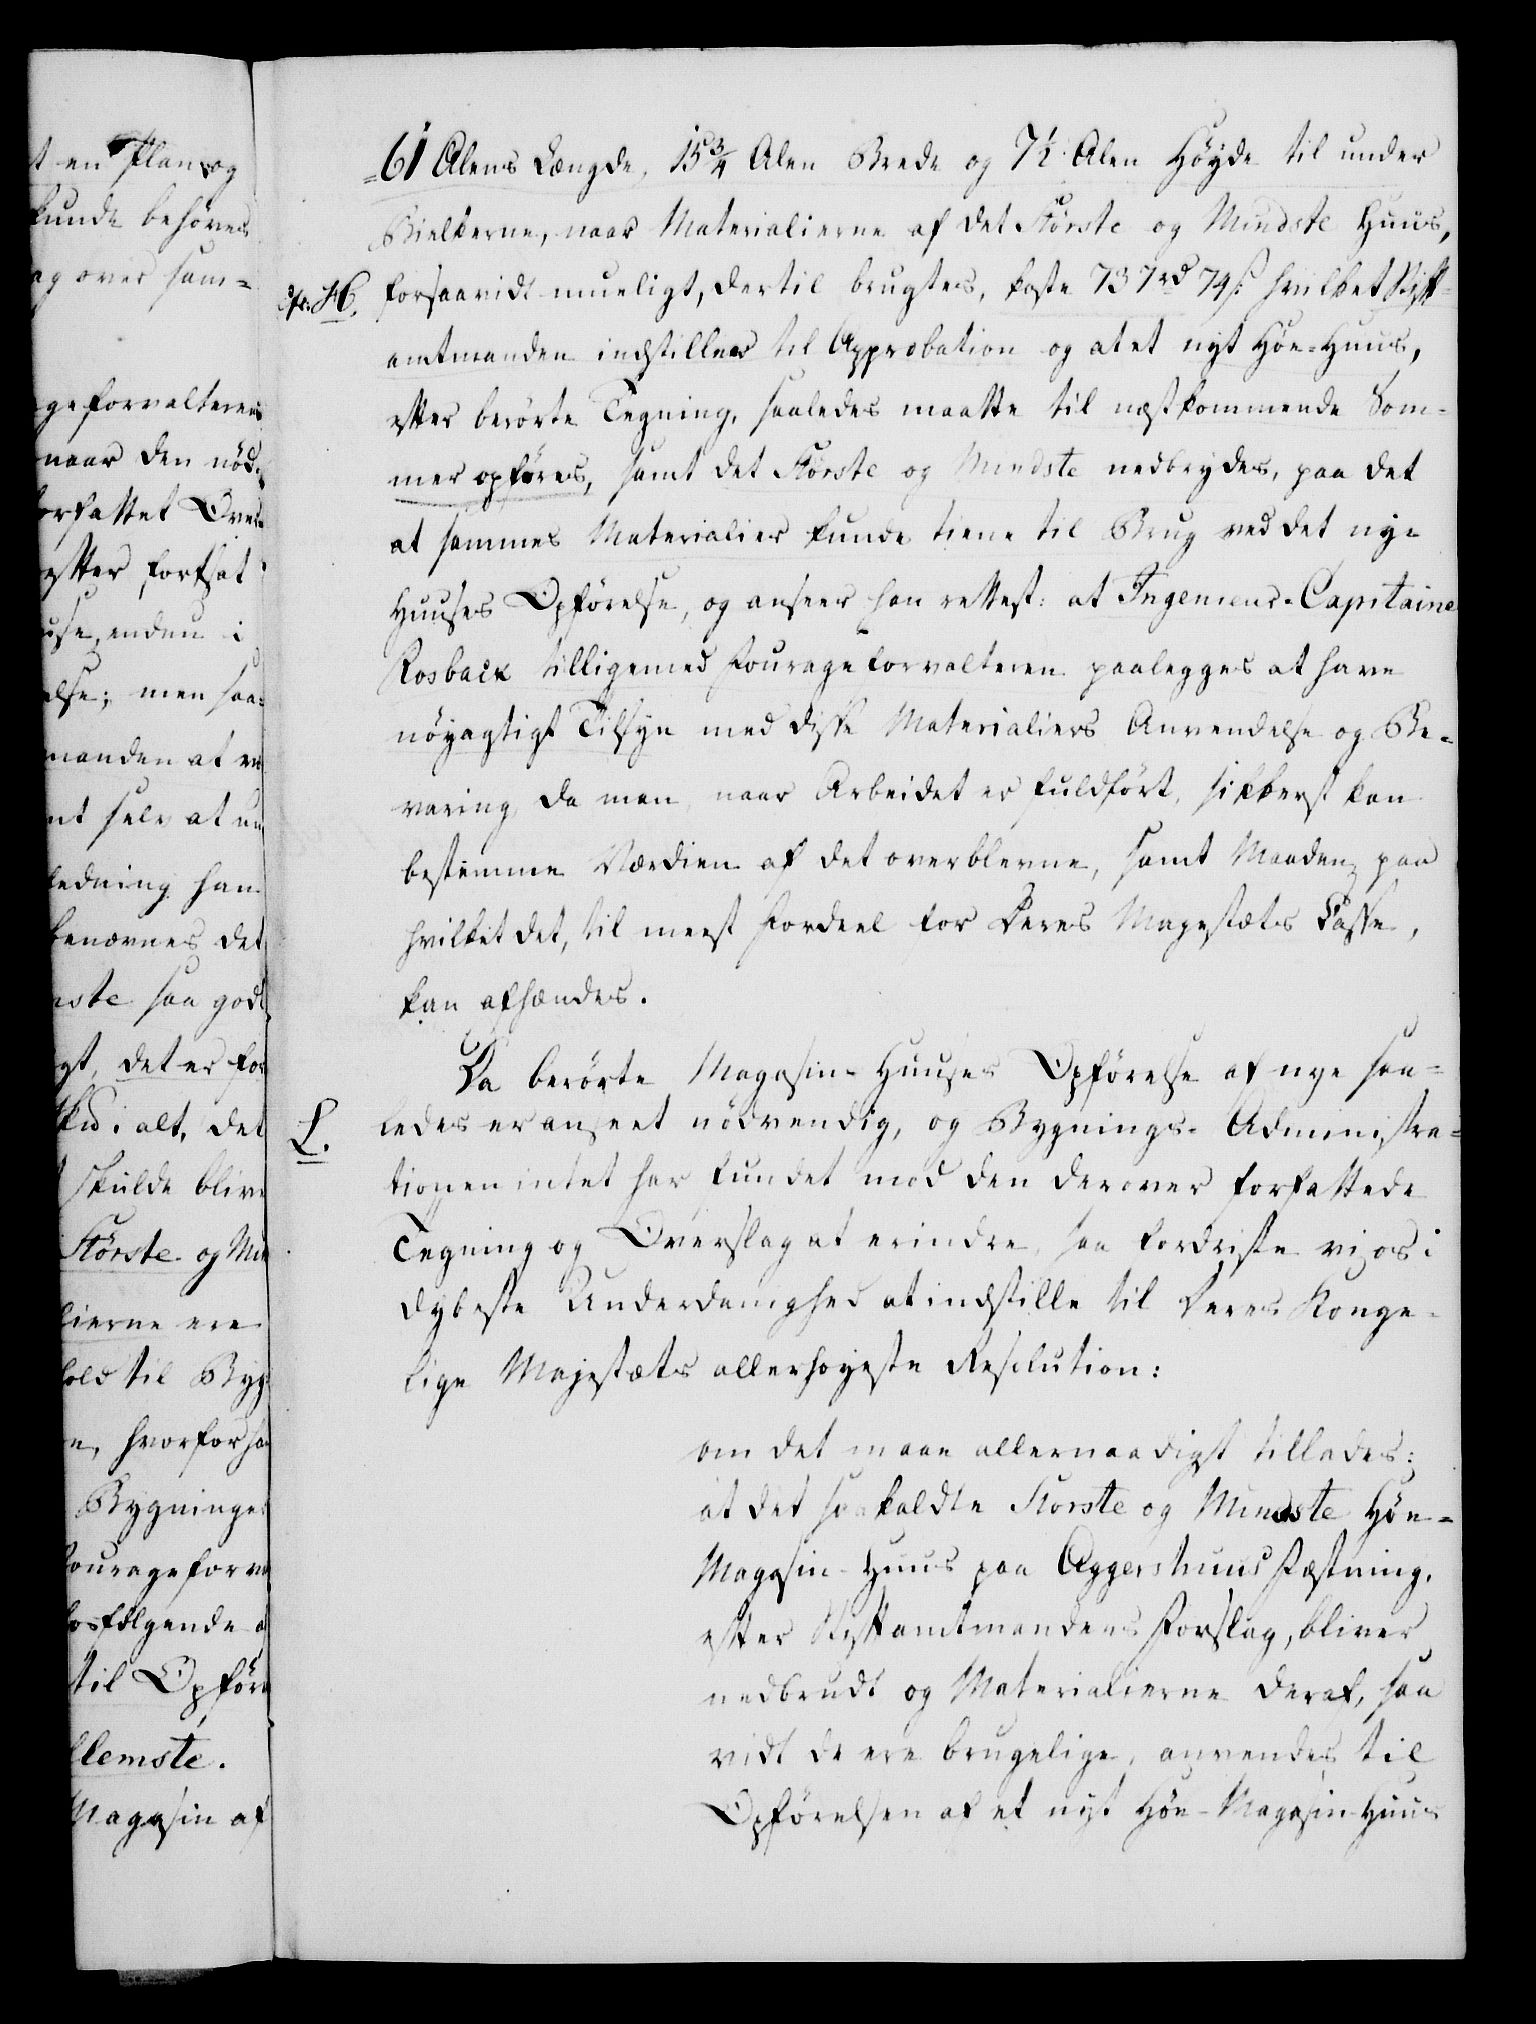 t en Plan og
kunde behøves
ag over sam-
geforvalterens
naar den nød-
orfattet Over-
efter fortsat
use, enden i
else; men saa-
manden at
nt selv at
ledning han
benævnes det
nste saa godt
gt, det er for
i alt, det
skulde blive
Störste og Min
lierne ere
hold til Byg
n, hvorfor ha
Bygninges
fouragefor
osfølgende
til Opför
llemste.
Magasin af
=61 Alens Længde, 15¾ Alen Brede og 7½ Alen Höyde til under
Bielkerne, naar Materialierne af det Störste og Mindste Huus,
cfr. H. forsaavidt mueligt, dertil brugtes, koste 737 rd 74 s. hvilket Stift-
amtmanden indstiller til Approbation og at et nyt Höe-Huus,
efter berörte Tegning, saaledes maatte til næstkommende Som-
mer opföres, samt det Störste og Mindste nedbrydes, paa det
at sammes Materialier kunde tiene til Brug ved det nye
Huuses Opförelse, og anseer han rettest: at Ingenieur-Capitaine
Rosback tilligemed Fourageforvalteren paalegges at have
nöyagtigt Tilsyn med disse Materialiers Anvendelse og Be-
varing, da man, naar Arbeidet er fuldfört, sikkerst kan
bestemme Værdien af det overblevne, samt Maaden, paa
hvilket det, til meest Fordeel for Deres Majestæts Casse,
kan afhændes.
Da berörte Magasin-Huuses Opförelse af nye saa-
L. ledes er anseet nödvendig, og Bygnings-Administra-
tionen intet har fundet mod den derover forfattede
Tegning og Overslag at erindre, saa fordriste vi os i
dybeste Underdanighed at indstille til Deres Konge-
lige Majestæts allerhöyeste Resolution:
om det maae allernaadigst tillades:
at det saakaldte Störste og Mindste Höe-
Magasin-Huus paa Aggershuus Fæstning,
efter Stiftamtmandens Forslag, bliver
nedbrudt og Materialierne deraf, saa
vidt de ere brugelige, anvendes til
Opförelsen af et nyt Höe-Magasin-Huus